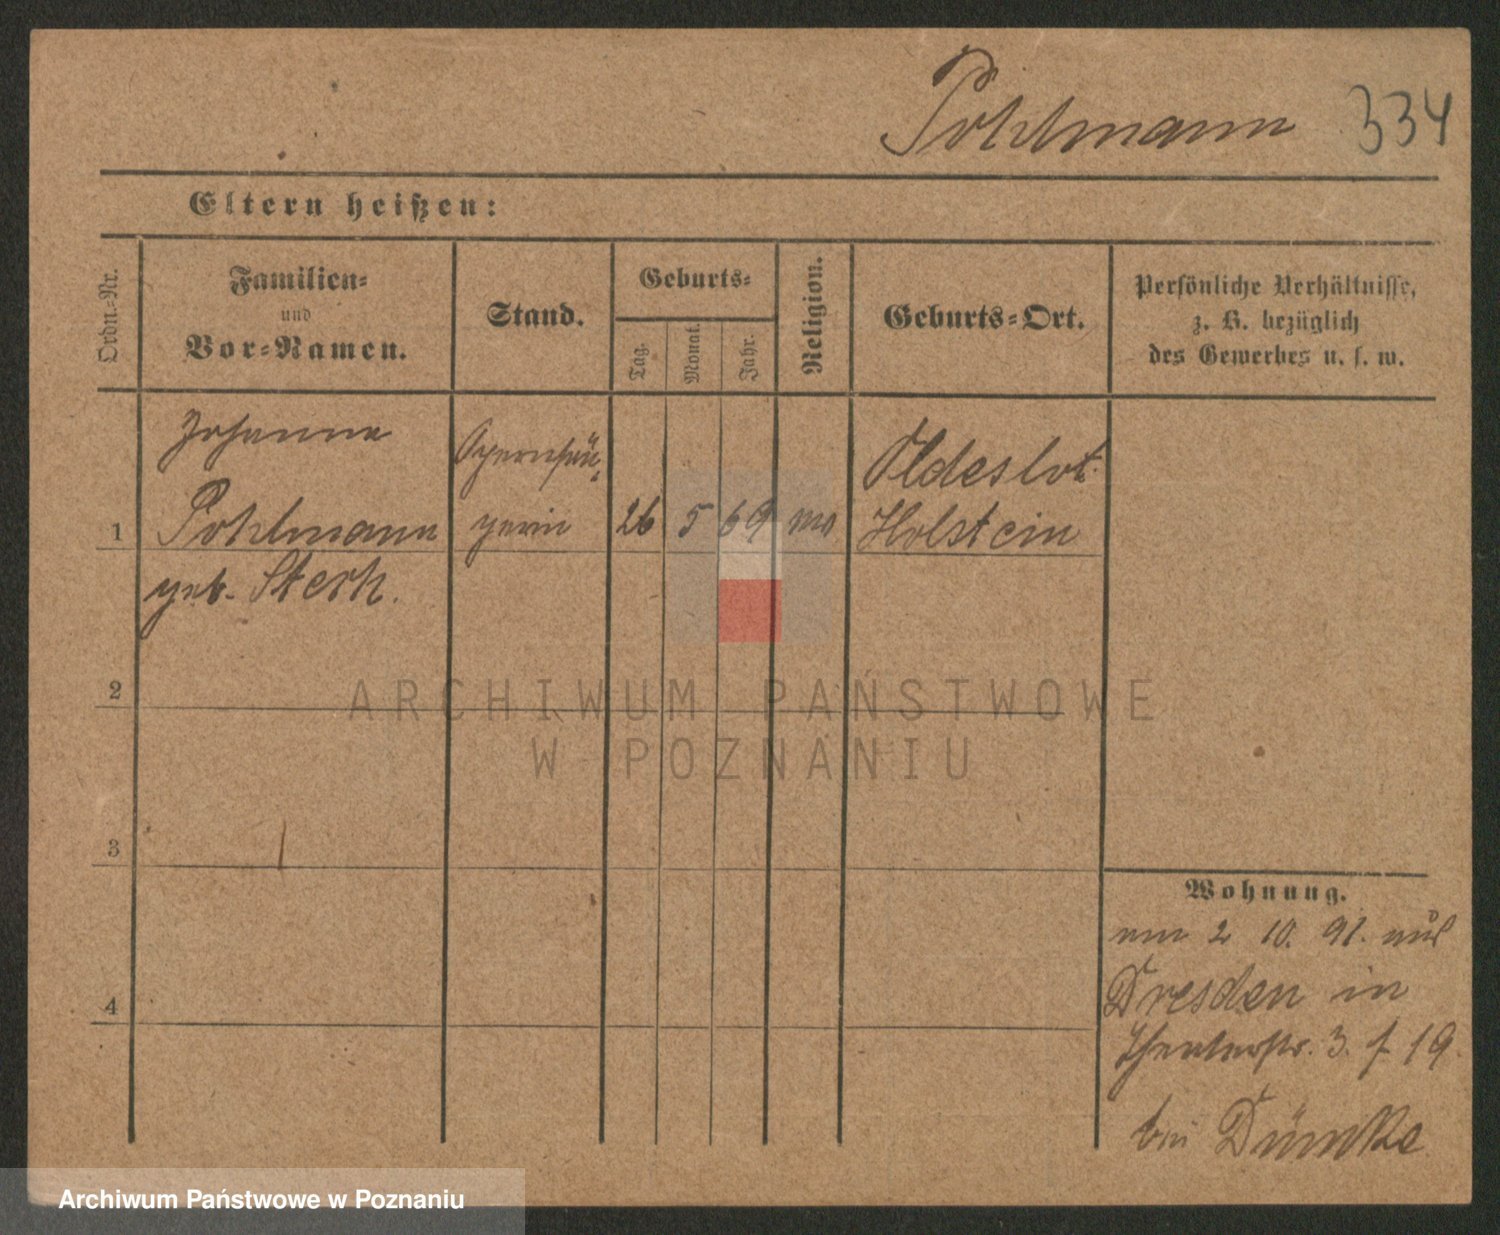 Pohlmann 334
Eltern heißen:
Ordn.-Nr.
Familien-
und
Vor-Namen.
Stand.
Geburts-
Tag.
Monat.
Jahr.
Religion.
Geburts-Ort.
Persönliche Verhältnisse,
z. B. bezüglich
des Gewerbes u. s. w.
Johanna
Opernsän-
Oldeslo
1 Pohlmann gerin 26 5 69 mo Holstein
geb. Sterk.
2
ARCHIWUM PAŃSTWOWE
W POZNANIU
3
Wohnung.
am 2 10. 91. aus
Dresden in
4
Theaterstr. 3. f 19.
bei Dümke
Archiwum Państwowe w Poznaniu